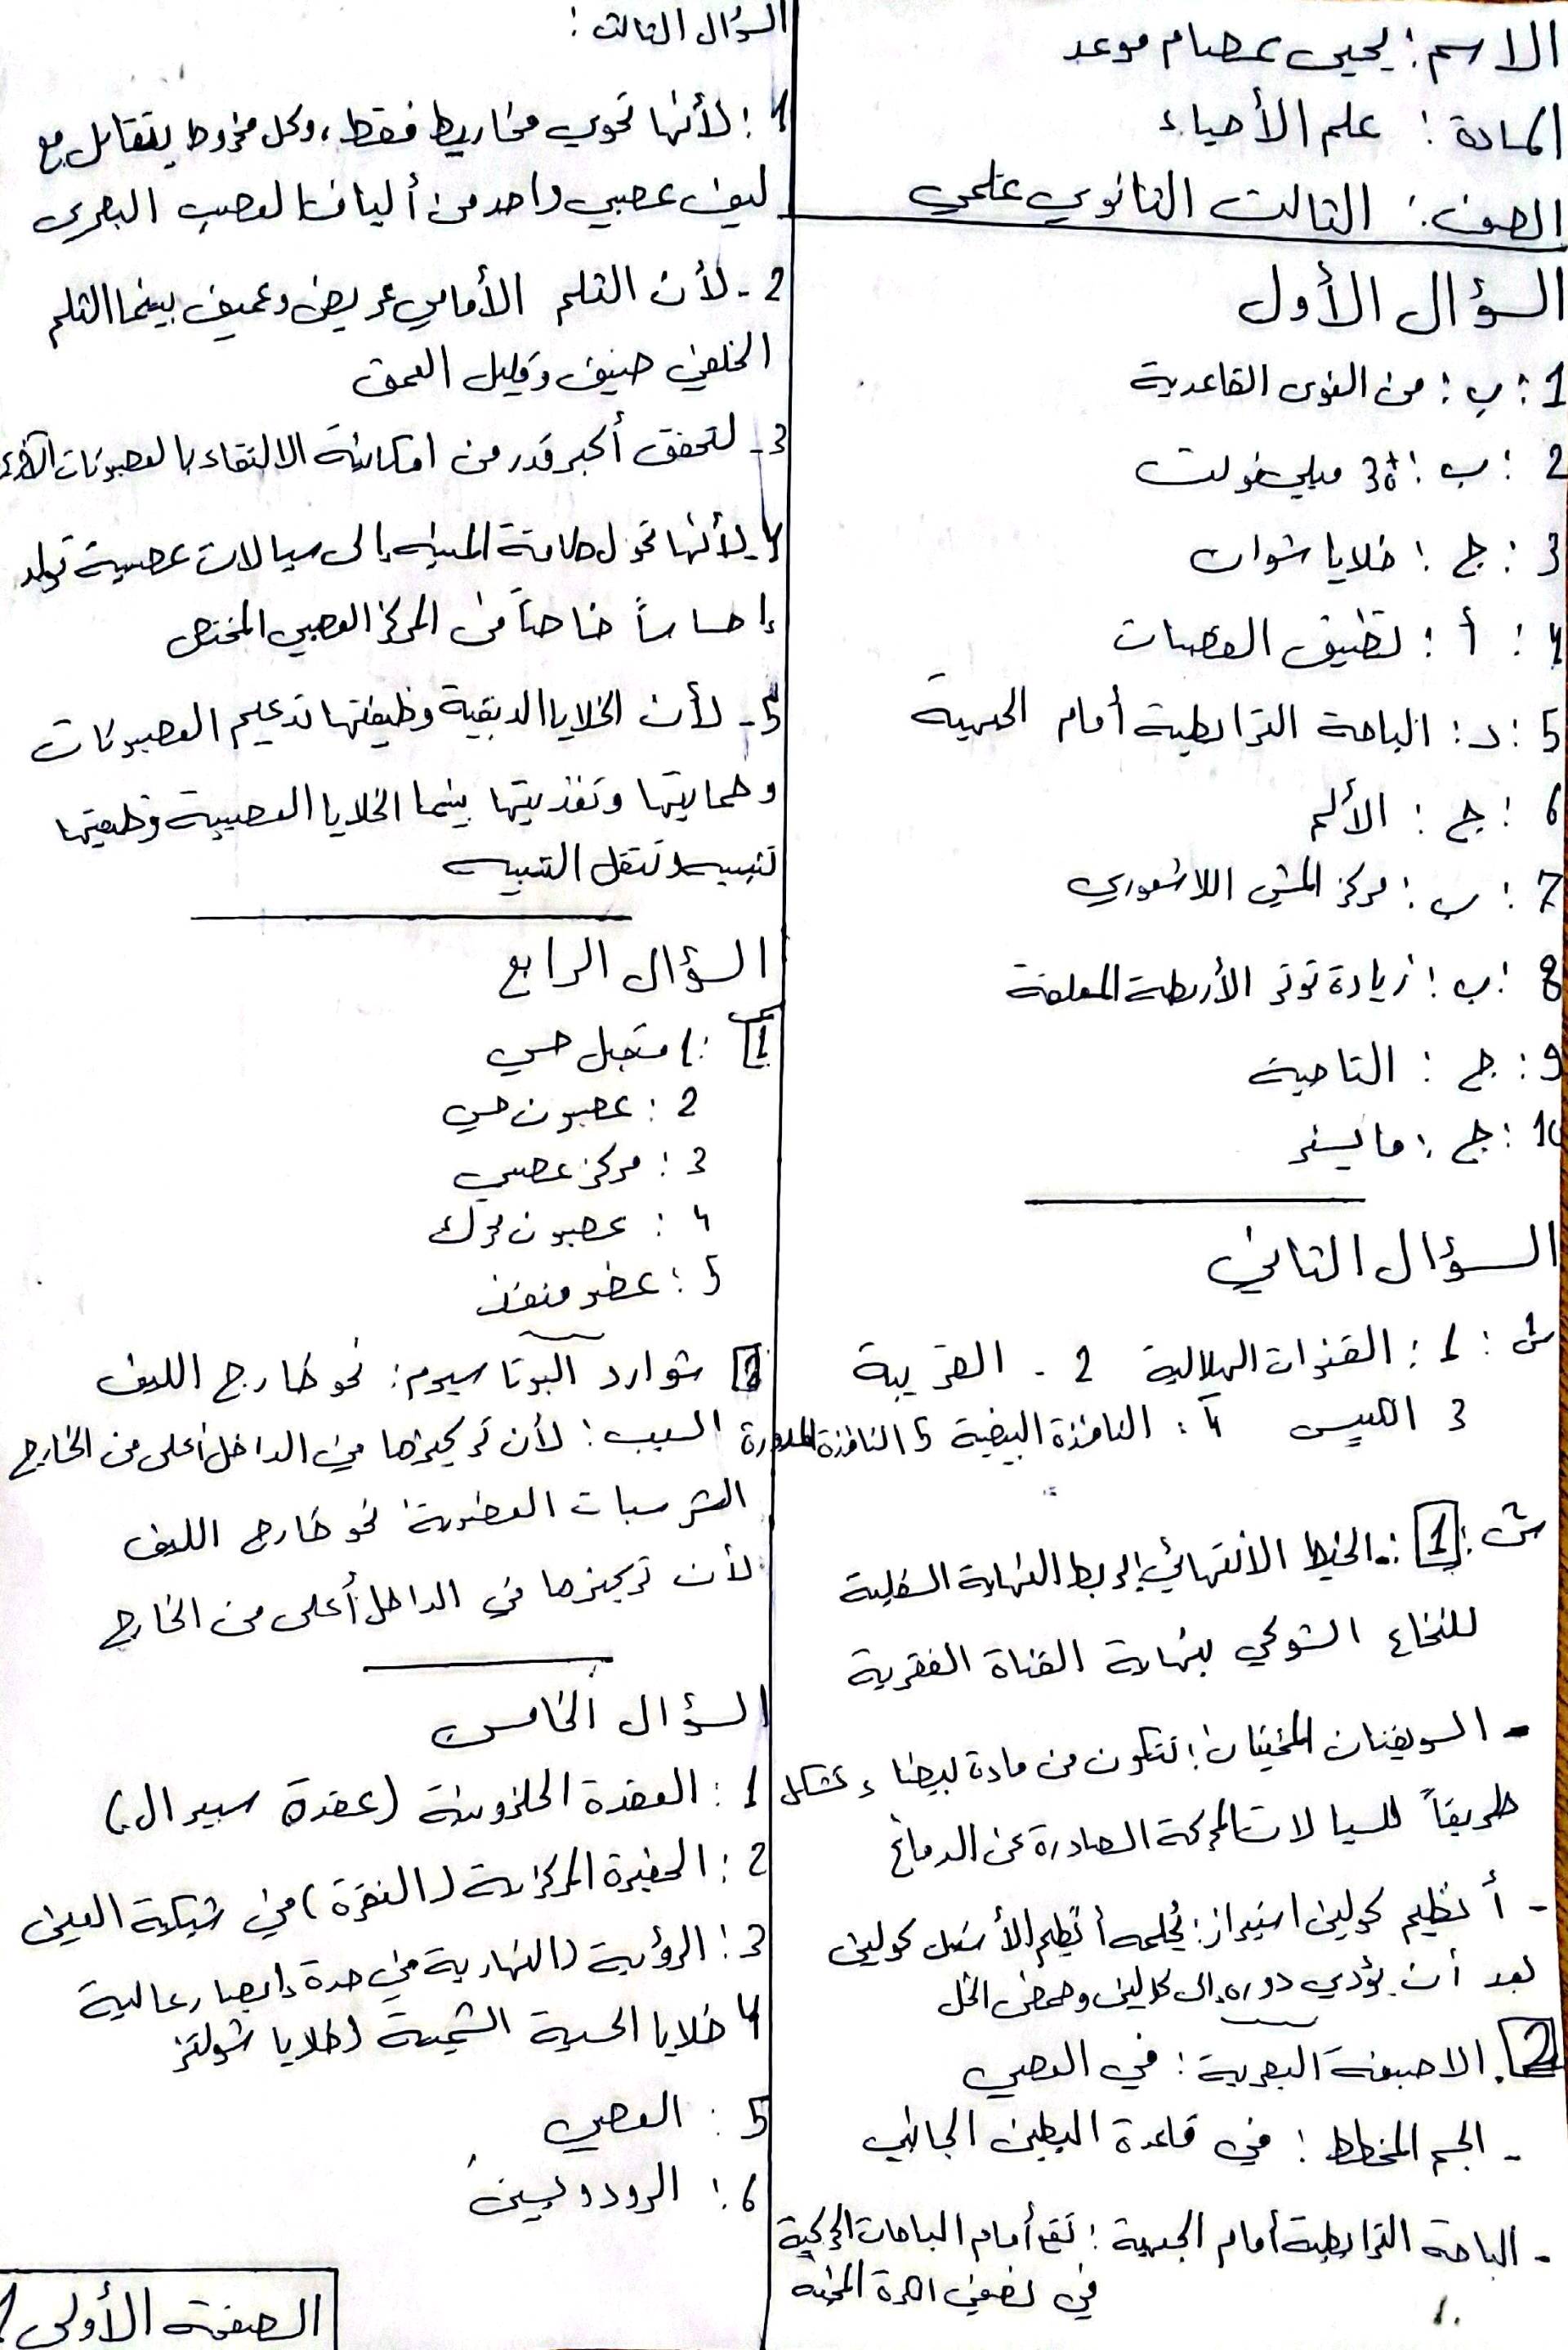 الاسم: يحيى عصام موعد
المادة: علم الأحياء
الصف: الثالث الثانوي علمي
السؤال الأول
1: ب: من النوى القاعدية
2: ب: +30 ميلي فولت
3: ج: خلايا شوان
4: أ: تضيق القصبات
5: د: الباحة الترابطية أمام الجبهية
6: ج: الألم
7: ب: مركز المشي اللاشعوري
8: ب: زيادة توتر الأربطة المعلقة
9: ج: التاجية
10: ج: مايسنر
السؤال الثاني
ش: 1: القنوات الهلالية 2 - القريبة
3 الكييس 4: النافذة البيضية 5 النافذة المدورة
ش: 1: الخيط الانتهائي: يربط النهاية السفلية
للنخاع الشوكي بنهاية القناة الفقرية
- السويقتان المخيتان: تتكون من مادة بيضاء وتشكل
طريقاً للسيالات المحركة الصادرة عن الدماغ
- أنظيم كولين استيراز: يحلمه أنظيم الأستيل كولين
بعد أن يؤدي دوره إلى كولين وحمض الخل
2. الاصبغة البصرية: في العصي
- الجسم المخطط: في قاعدة البطين الجانبي
- الباحة الترابطية أمام الجبهية: تقع أمام الباحات الحركية
في نصفي الكرة المخية
السؤال الثالث:
1: لأنها تحوي مخاريط فقط، وكل مخروط يتقابل مع
ليف عصبي واحد من ألياف العصب البصري
2- لأن الثلم الأمامي عريض وعميق بينما الثلم
الخلفي ضيق وقليل العمق
3- لتحقق أكبر قدر من امكانية الالتقاء بالعصبونات الأخرى
4- لأنها تحول طاقة المنبه إلى سيالات عصبية تولد
إحساساً خاصاً في المركز العصبي المختص
5- لأن الخلايا الدبقية وظيفتها تدعيم العصبونات
وحمايتها وتغذيتها بينما الخلايا العصبية وظيفتها
تنبيه وتنقل التنبيه
السؤال الرابع
1: 1 مستقبل حسي
2: عصبون حسي
3: مركز عصبي
4: عصبون محرك
5: عضو منفذ
2 شوارد البوتاسيوم: نحو خارج الليف
السبب: لأن تركيزها في الداخل أعلى من الخارج
الشرسبات العضوية: نحو خارج الليف
لأن تركيزها في الداخل أعلى من الخارج
السؤال الخامس
1: العقدة الحلزونية (عقدة سبيرال)
2: الحفيرة المركزية (النقرة) في شبكية العين
3: الرؤية النهارية في حدة إبصار عالية
4 خلايا الحسية الشمية (خلايا شولتز
5: العصي
6: الرودوبسين
الصفحة الأولى 1